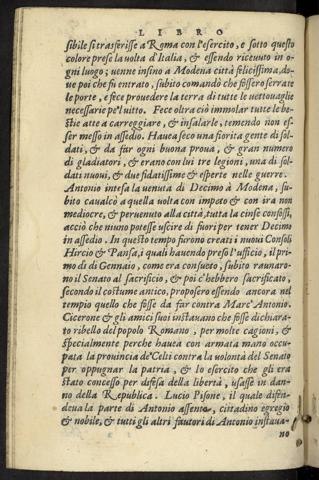 LIBRO
sibile si trasferisse a Roma con l'esercito, e sotto questo
colore prese la volta d'Italia, & essendo ricevuto in o-
gni luogo; uenne insino a Modena città felicissima, do-
ue poi che fu entrato, subito comandò che fossero serrate
le porte, e fece prouedere la terra di tutte le uettouaglie
necessarie pe'l uitto. Fece oltra ciò immolar tutte le bo-
stie atte a carreggiare, & insalarle, temendo non es-
ser messo in assedio. Hauea seco una fiorita gente di sol-
dati, & da far ogni buona proua, & gran numero
di gladiatori, & erano con lui tre legioni, una di sol-
dati nuoui, & due fidatissime & esperte nelle guerre.
Antonio intesa la uenuta di Decimo à Modena, su-
bito caualcò a quella volta con impeto & con ira non
mediocre, & peruenuto alla città, tutta la cinse con fossi,
acciò che niuno potesse uscire di fuori per tener Decimo
in assedio. In questo tempo furono creati i nuoui Consoli
Hircio & Pansa, i quali hauendo preso l'ufficio, il pri-
mo dì di Gennaio, come era consueto, subito raunaro-
no il Senato al sacrificio, & poi c'hebbero sacrificato,
secondo il costume antico, proposero essendo ancora nel
tempio quello che fosse da far contra Marc'Antonio.
Cicerone & gli amici suoi instauano che fosse dichiara-
to ribello del popolo Romano, per molte cagioni, &
spetialmente perche hauea con armata mano occu-
pata la prouincia de'Celti contra la volontà del Senato
per oppugnar la patria, & lo esercito che gli era
stato concesso per difesa della libertà, usasse in dan-
no della Republica. Lucio Pisone, il quale difen-
deua la parte di Antonio assente, cittadino egregio
& nobile, & tutti gli altri fautori di Antonio instaua-
no